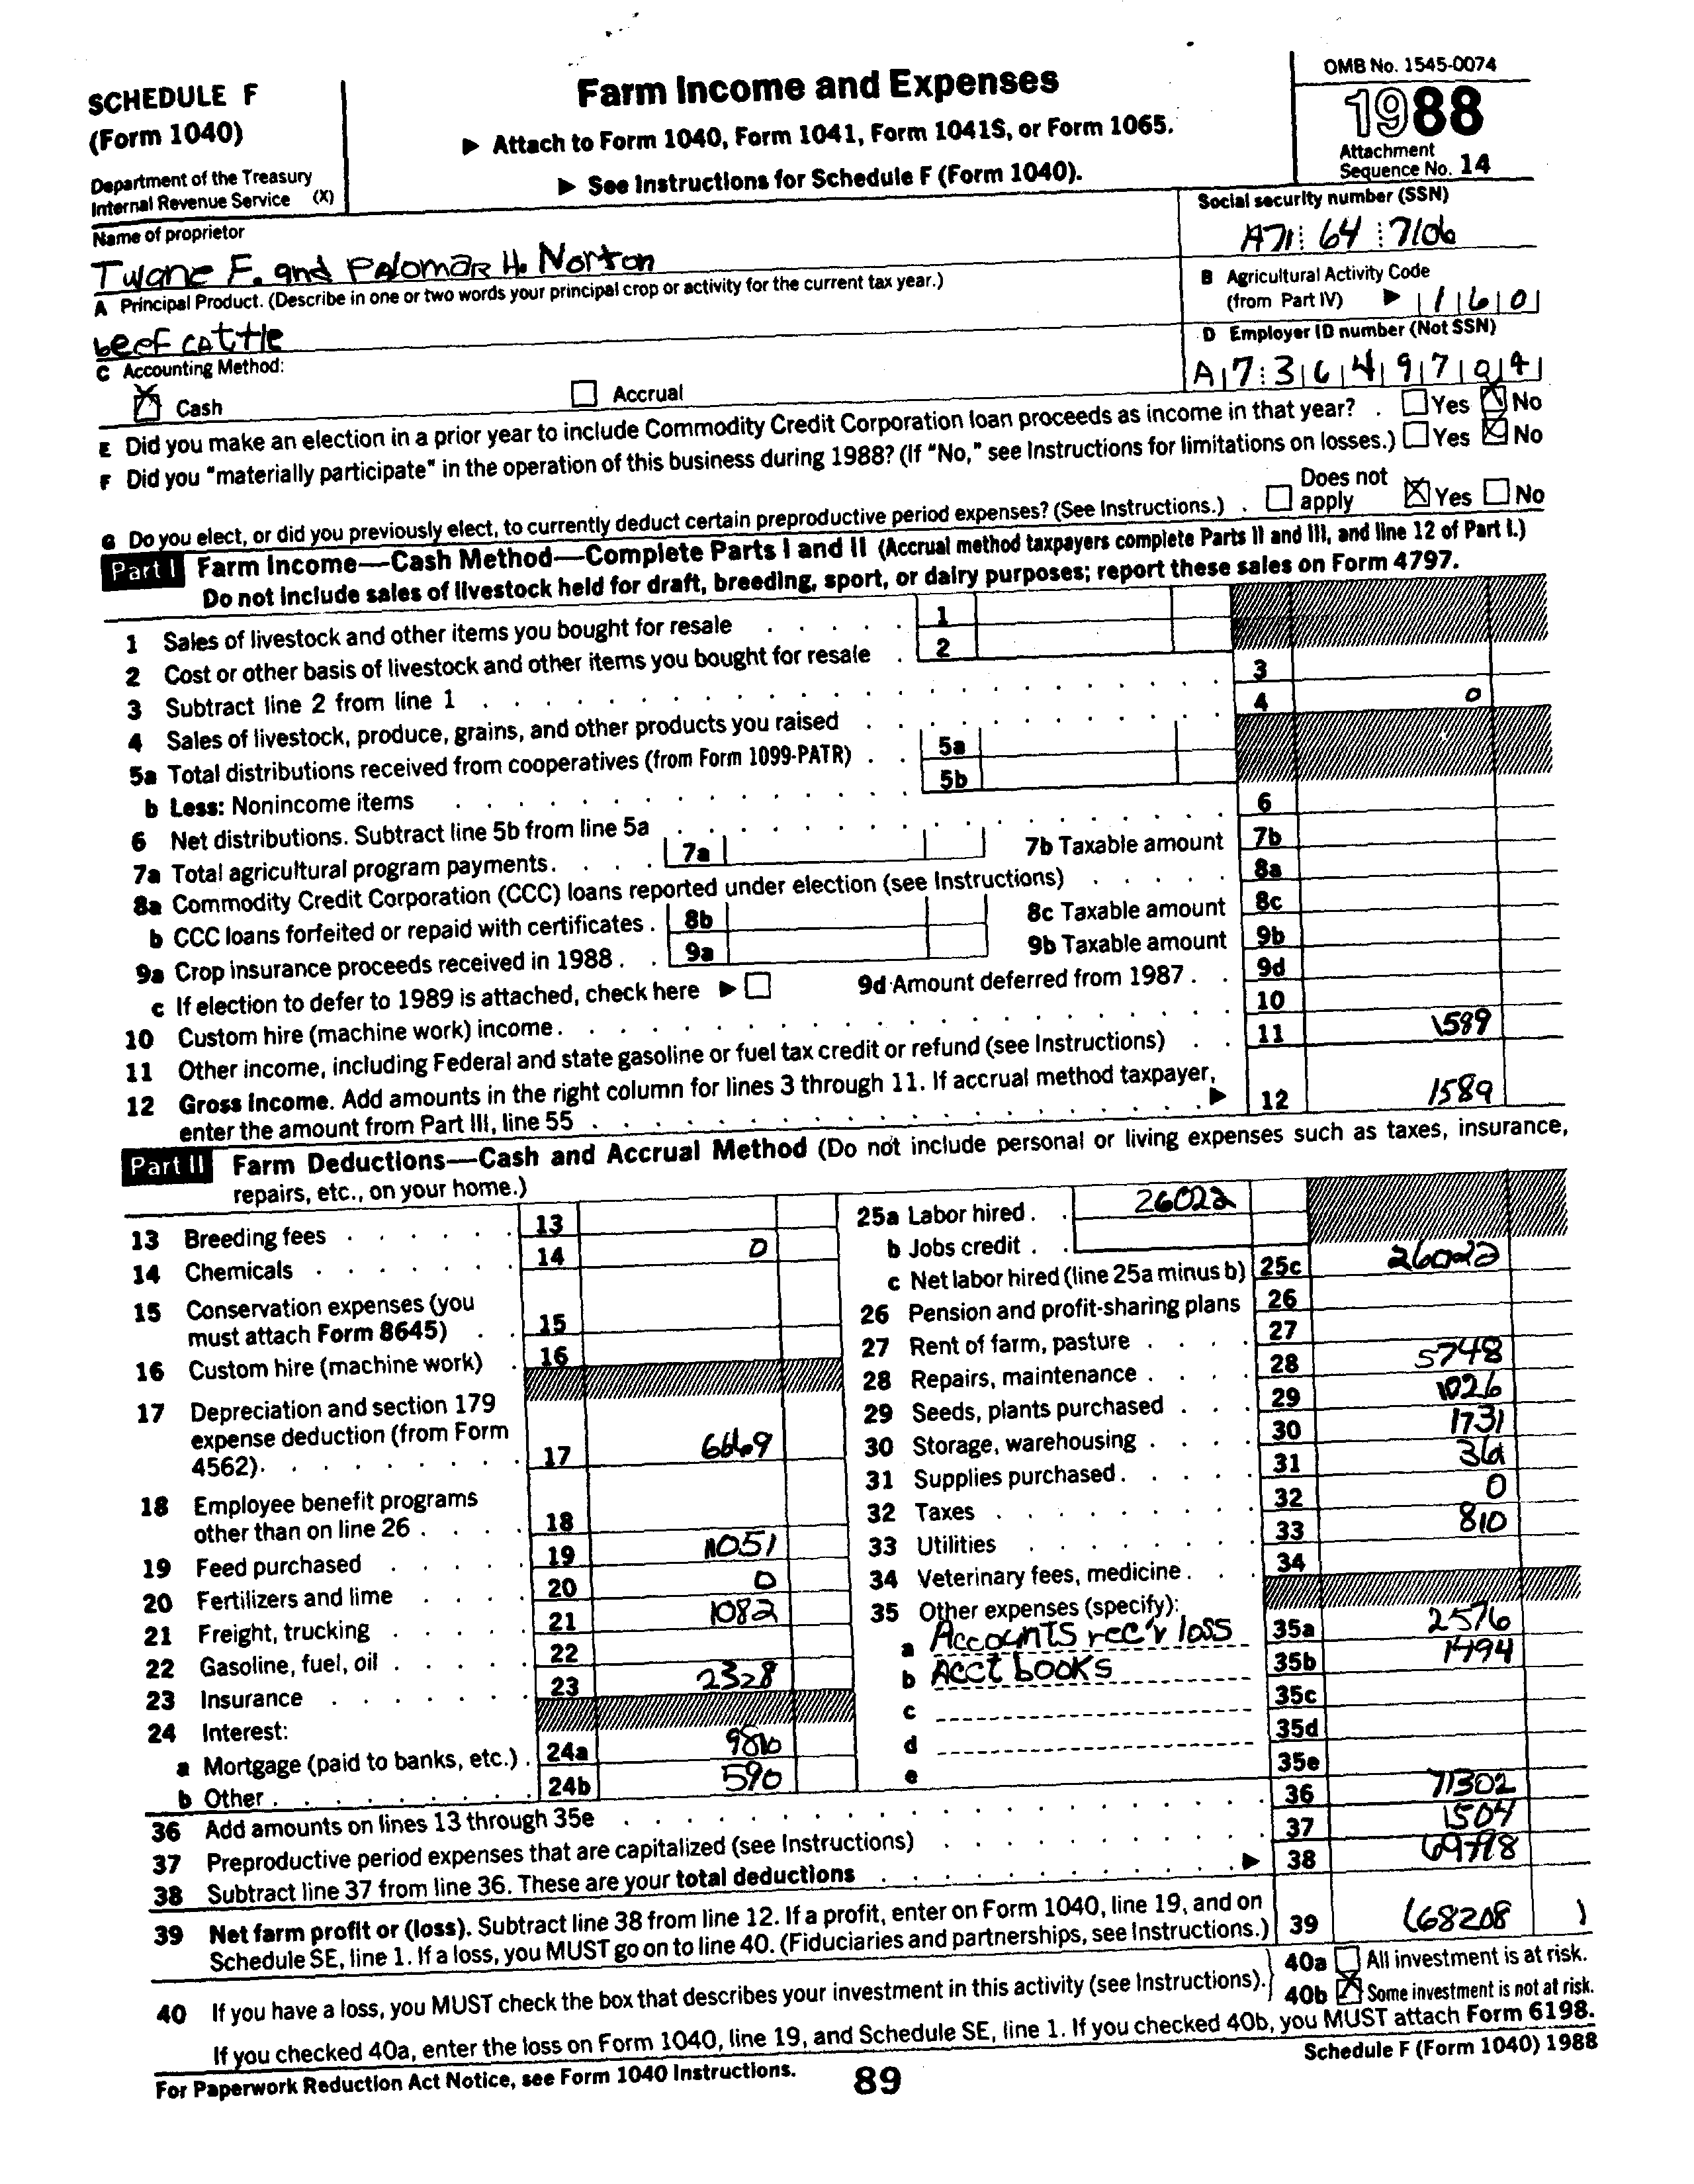 SCHEDULE F
(Form 1040)
Department of the Treasury
Internal Revenue Service (X)
Farm Income and Expenses
▶ Attach to Form 1040, Form 1041, Form 1041S, or Form 1065.
▶ See Instructions for Schedule F (Form 1040).
OMB No. 1545-0074
1988
Attachment
Sequence No. 14
Name of proprietor
Twane F. and Palomar H. Norton
Social security number (SSN)
A71 64 7106
A Principal Product. (Describe in one or two words your principal crop or activity for the current tax year.)
beef cattle
B Agricultural Activity Code
(from Part IV) ▶ 1 6 0
C Accounting Method:
Cash
Accrual
D Employer ID number (Not SSN)
A 7 3 6 4 9 7 0 4
E Did you make an election in a prior year to include Commodity Credit Corporation loan proceeds as income in that year? . Yes No
F Did you "materially participate" in the operation of this business during 1988? (If "No," see Instructions for limitations on losses.) Yes No
G Do you elect, or did you previously elect, to currently deduct certain preproductive period expenses? (See Instructions.) . Does not apply Yes No
Part I Farm Income—Cash Method—Complete Parts I and II (Accrual method taxpayers complete Parts II and III, and line 12 of Part I.)
Do not include sales of livestock held for draft, breeding, sport, or dairy purposes; report these sales on Form 4797.
1 Sales of livestock and other items you bought for resale 1
2 Cost or other basis of livestock and other items you bought for resale 2
3 Subtract line 2 from line 1 3
4 Sales of livestock, produce, grains, and other products you raised 4 0
5a Total distributions received from cooperatives (from Form 1099-PATR) 5a
b Less: Nonincome items 5b
6 Net distributions. Subtract line 5b from line 5a 6
7a Total agricultural program payments. 7a 7b Taxable amount 7b
8a Commodity Credit Corporation (CCC) loans reported under election (see Instructions) 8a
b CCC loans forfeited or repaid with certificates . 8b 8c Taxable amount 8c
9a Crop insurance proceeds received in 1988 . 9a 9b Taxable amount 9b
c If election to defer to 1989 is attached, check here ▶ 9d Amount deferred from 1987 . 9d
10 Custom hire (machine work) income . 10
11 Other income, including Federal and state gasoline or fuel tax credit or refund (see Instructions) 11 1589
12 Gross income. Add amounts in the right column for lines 3 through 11. If accrual method taxpayer,
enter the amount from Part III, line 55 ▶ 12 1589
Part II Farm Deductions—Cash and Accrual Method (Do not include personal or living expenses such as taxes, insurance,
repairs, etc., on your home.)
13 Breeding fees 13
14 Chemicals 14 0
15 Conservation expenses (you
must attach Form 8645) 15
16 Custom hire (machine work) 16
17 Depreciation and section 179
expense deduction (from Form
4562). 17 6669
18 Employee benefit programs
other than on line 26 . 18
19 Feed purchased 19 11051
20 Fertilizers and lime 20 0
21 Freight, trucking 21 1082
22 Gasoline, fuel, oil 22
23 Insurance 23 2328
24 Interest:
a Mortgage (paid to banks, etc.) . 24a 9810
b Other . 24b 590
25a Labor hired . 26022
b Jobs credit .
c Net labor hired (line 25a minus b) 25c 26022
26 Pension and profit-sharing plans 26
27 Rent of farm, pasture 27
28 Repairs, maintenance 28 5748
29 Seeds, plants purchased 29 1026
30 Storage, warehousing 30 1731
31 Supplies purchased . 31
32 Taxes 32 0
33 Utilities 33 810
34 Veterinary fees, medicine . 34
35 Other expenses (specify):
a Accounts rec'v loss 35a 2576
b Acct books 35b 1494
c 35c
d 35d
e 35e
36 Add amounts on lines 13 through 35e 36 71302
37 Preproductive period expenses that are capitalized (see Instructions) 37 1504
38 Subtract line 37 from line 36. These are your total deductions ▶ 38 69798
39 Net farm profit or (loss). Subtract line 38 from line 12. If a profit, enter on Form 1040, line 19, and on
Schedule SE, line 1. If a loss, you MUST go on to line 40. (Fiduciaries and partnerships, see Instructions.) 39 (68208 )
40 If you have a loss, you MUST check the box that describes your investment in this activity (see Instructions).
40a All investment is at risk.
40b Some investment is not at risk.
If you checked 40a, enter the loss on Form 1040, line 19, and Schedule SE, line 1. If you checked 40b, you MUST attach Form 6198.
For Paperwork Reduction Act Notice, see Form 1040 Instructions.
89
Schedule F (Form 1040) 1988